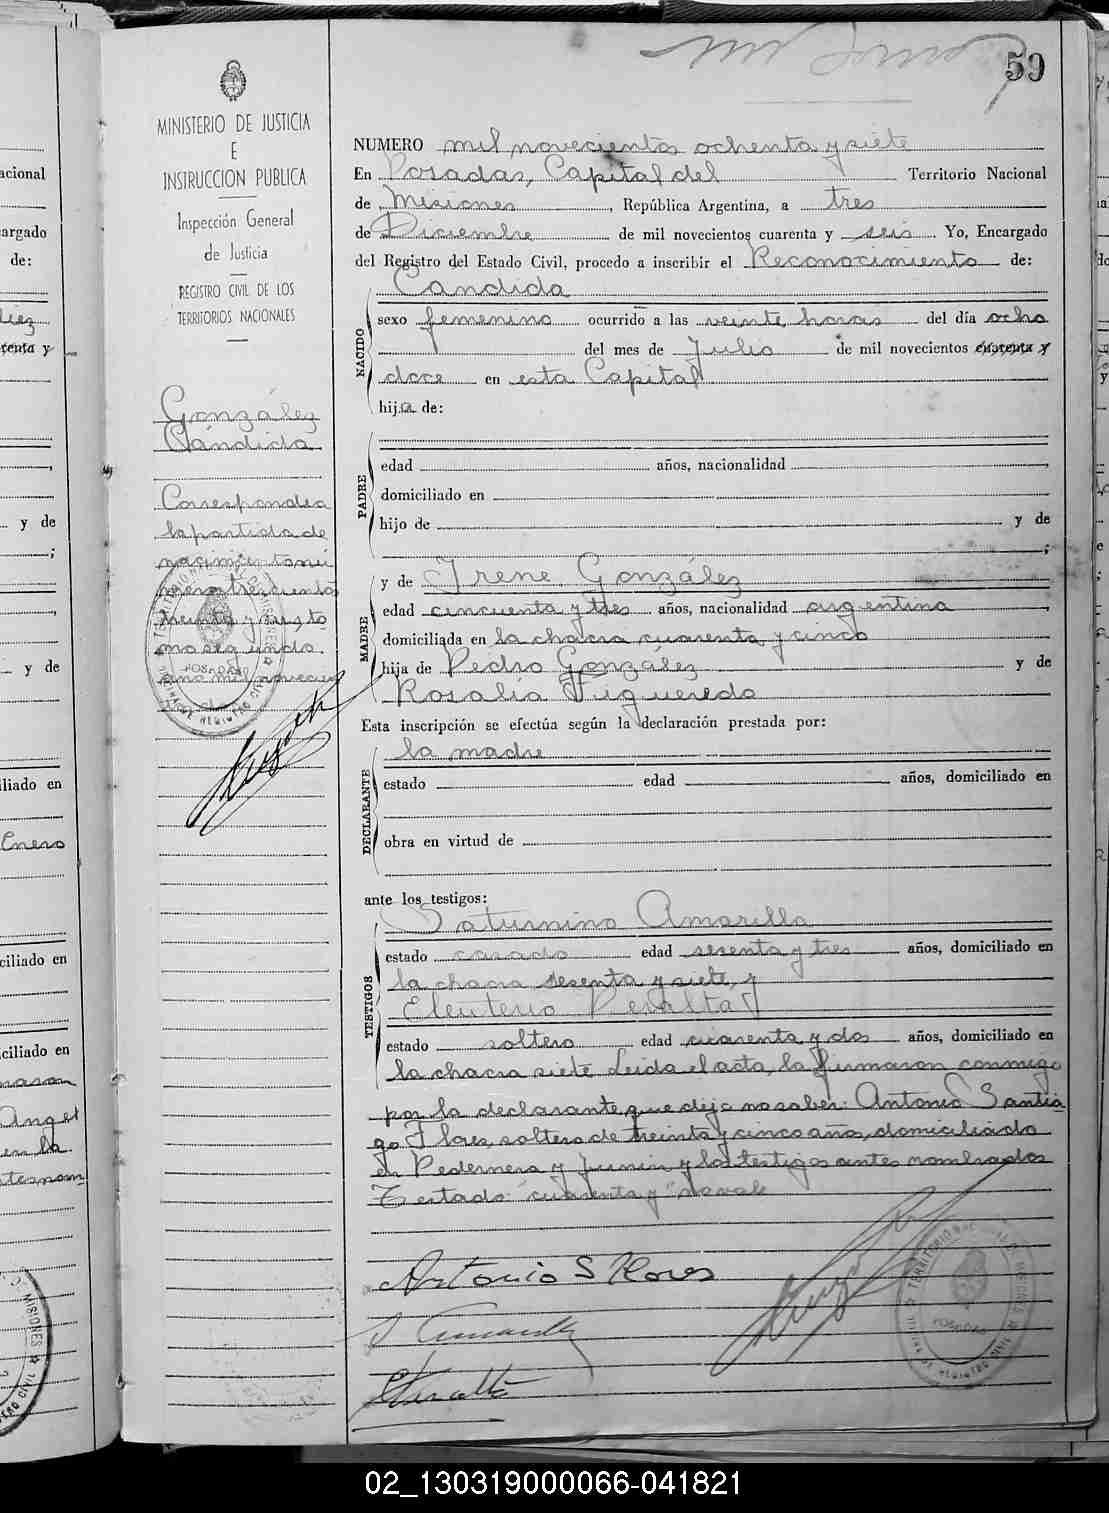 59
MINISTERIO DE JUSTICIA
E
INSTRUCCION PUBLICA
Inspección General
de Justicia
REGISTRO CIVIL DE LOS
TERRITORIOS NACIONALES
González
Cándida
Corresponde a
la partida de
nacimiento nú
mero trescientos
treinta y
tomo segundo
mil novecien
NUMERO mil novecientos ochenta y siete
En Posadas, Capital del Territorio Nacional
de Misiones, República Argentina, a tres
de Diciembre de mil novecientos cuarenta y seis. Yo, Encargado
del Registro del Estado Civil, procedo a inscribir el Reconocimiento de:
Candida
NACIDO
sexo femenino ocurrido a las veinte horas del día ocho
del mes de Julio de mil novecientos cuarenta y
doce en esta Capital
hija de:
PADRE
edad años, nacionalidad
domiciliado en
hijo de y de
;
MADRE
y de Irene González
edad cincuenta y tres años, nacionalidad argentina,
domiciliada en la chacra cuarenta y cinco
hija de Pedro González y de
Rosalía Figueredo
Esta inscripción se efectúa según la declaración prestada por:
la madre
DECLARANTE
estado edad años, domiciliado en
obra en virtud de
ante los testigos:
TESTIGOS
Saturnino Amarilla
estado casado edad sesenta y tres años, domiciliado en
la chacra sesenta y siete, y
Eleuterio Peralta
estado soltero edad cuarenta y dos años, domiciliado en
la chacra siete Leida el acta, la firmaron conmigo
por la declarante que dijo no saber: Antonio Santia
go Flores, soltero de treinta y cinco años, domiciliado
en Pedernera y Junin y los testigos antes nombrados
Testado: "cuarenta y" no vale
Antonio S Flores
E Peralta
POSADAS
MISIONES
acional
argado
de:
y de
;
y de
iliado en
Enero
ciliado en
ciliado en
Angel
en la
02_130319000066-041821